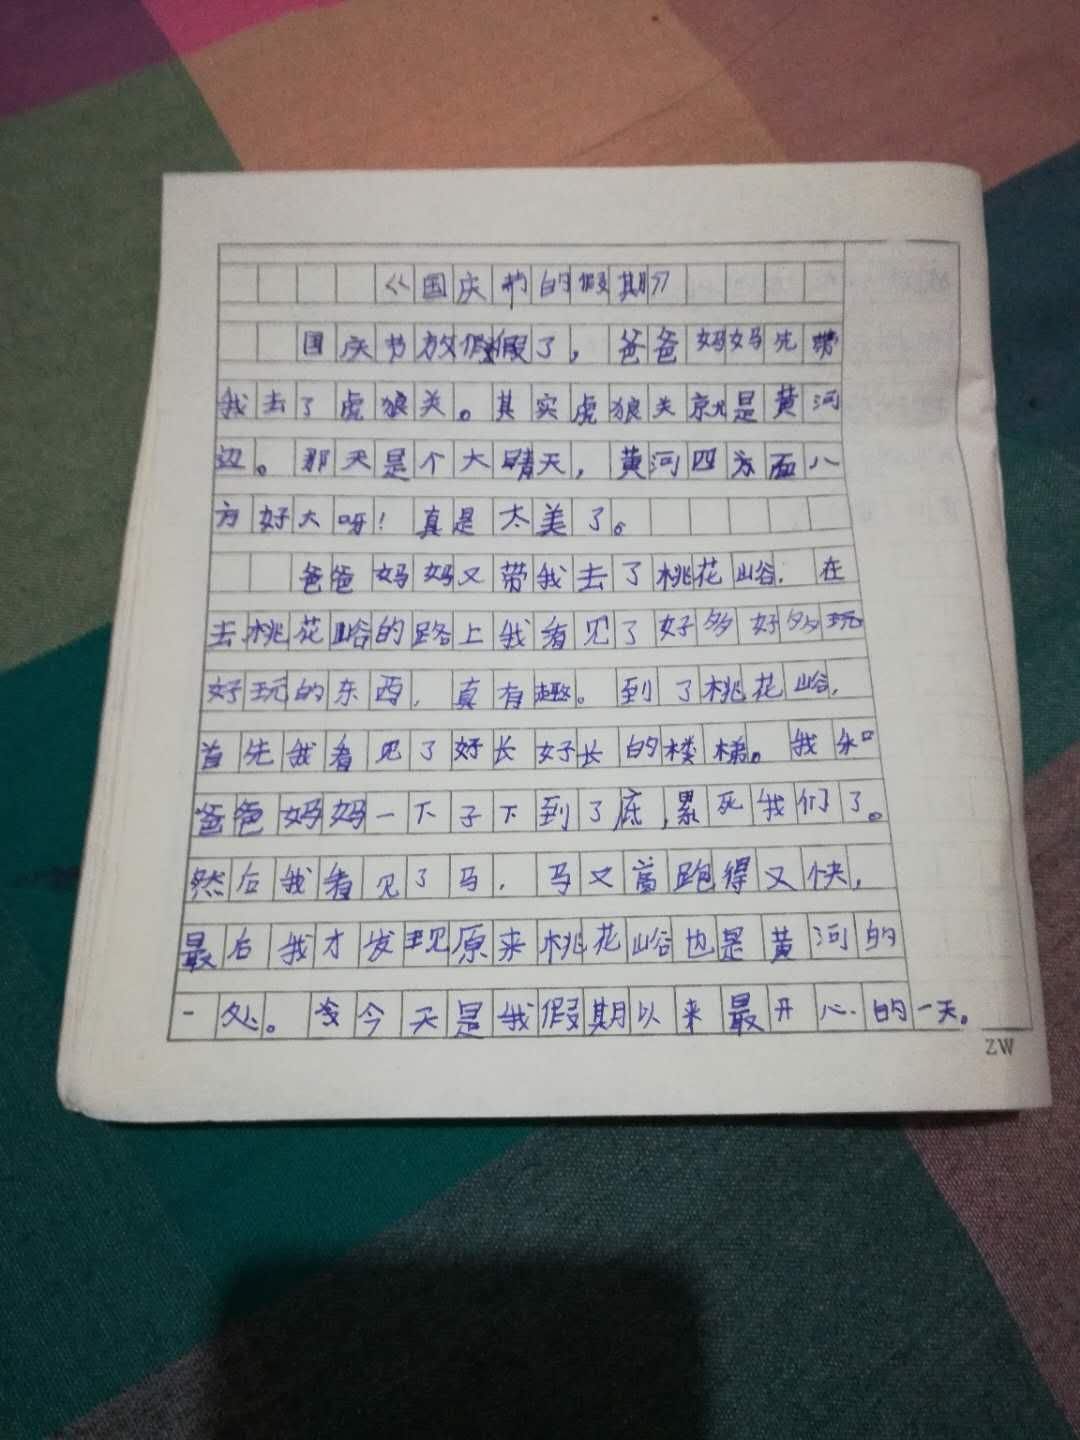 《国庆节的假期》
国庆节放假假了，爸爸妈妈先带
我去了虎狼关。其实虎狼关就是黄河
边。那天是个大晴天，黄河四方面八
方好大呀！真是太美了。
爸爸妈妈又带我去了桃花峪．在
去桃花峪的路上我看见了好多好多玩
好玩的东西，真有趣。到了桃花峪，
首先我看见了好长好长的楼梯。我和
爸爸妈妈一下子下到了底，累死我们了。
然后我看见了马，马又高跑得又快，
最后我才发现原来桃花峪也是黄河的
一处。今天是我假期以来最开心的一天。
ZW